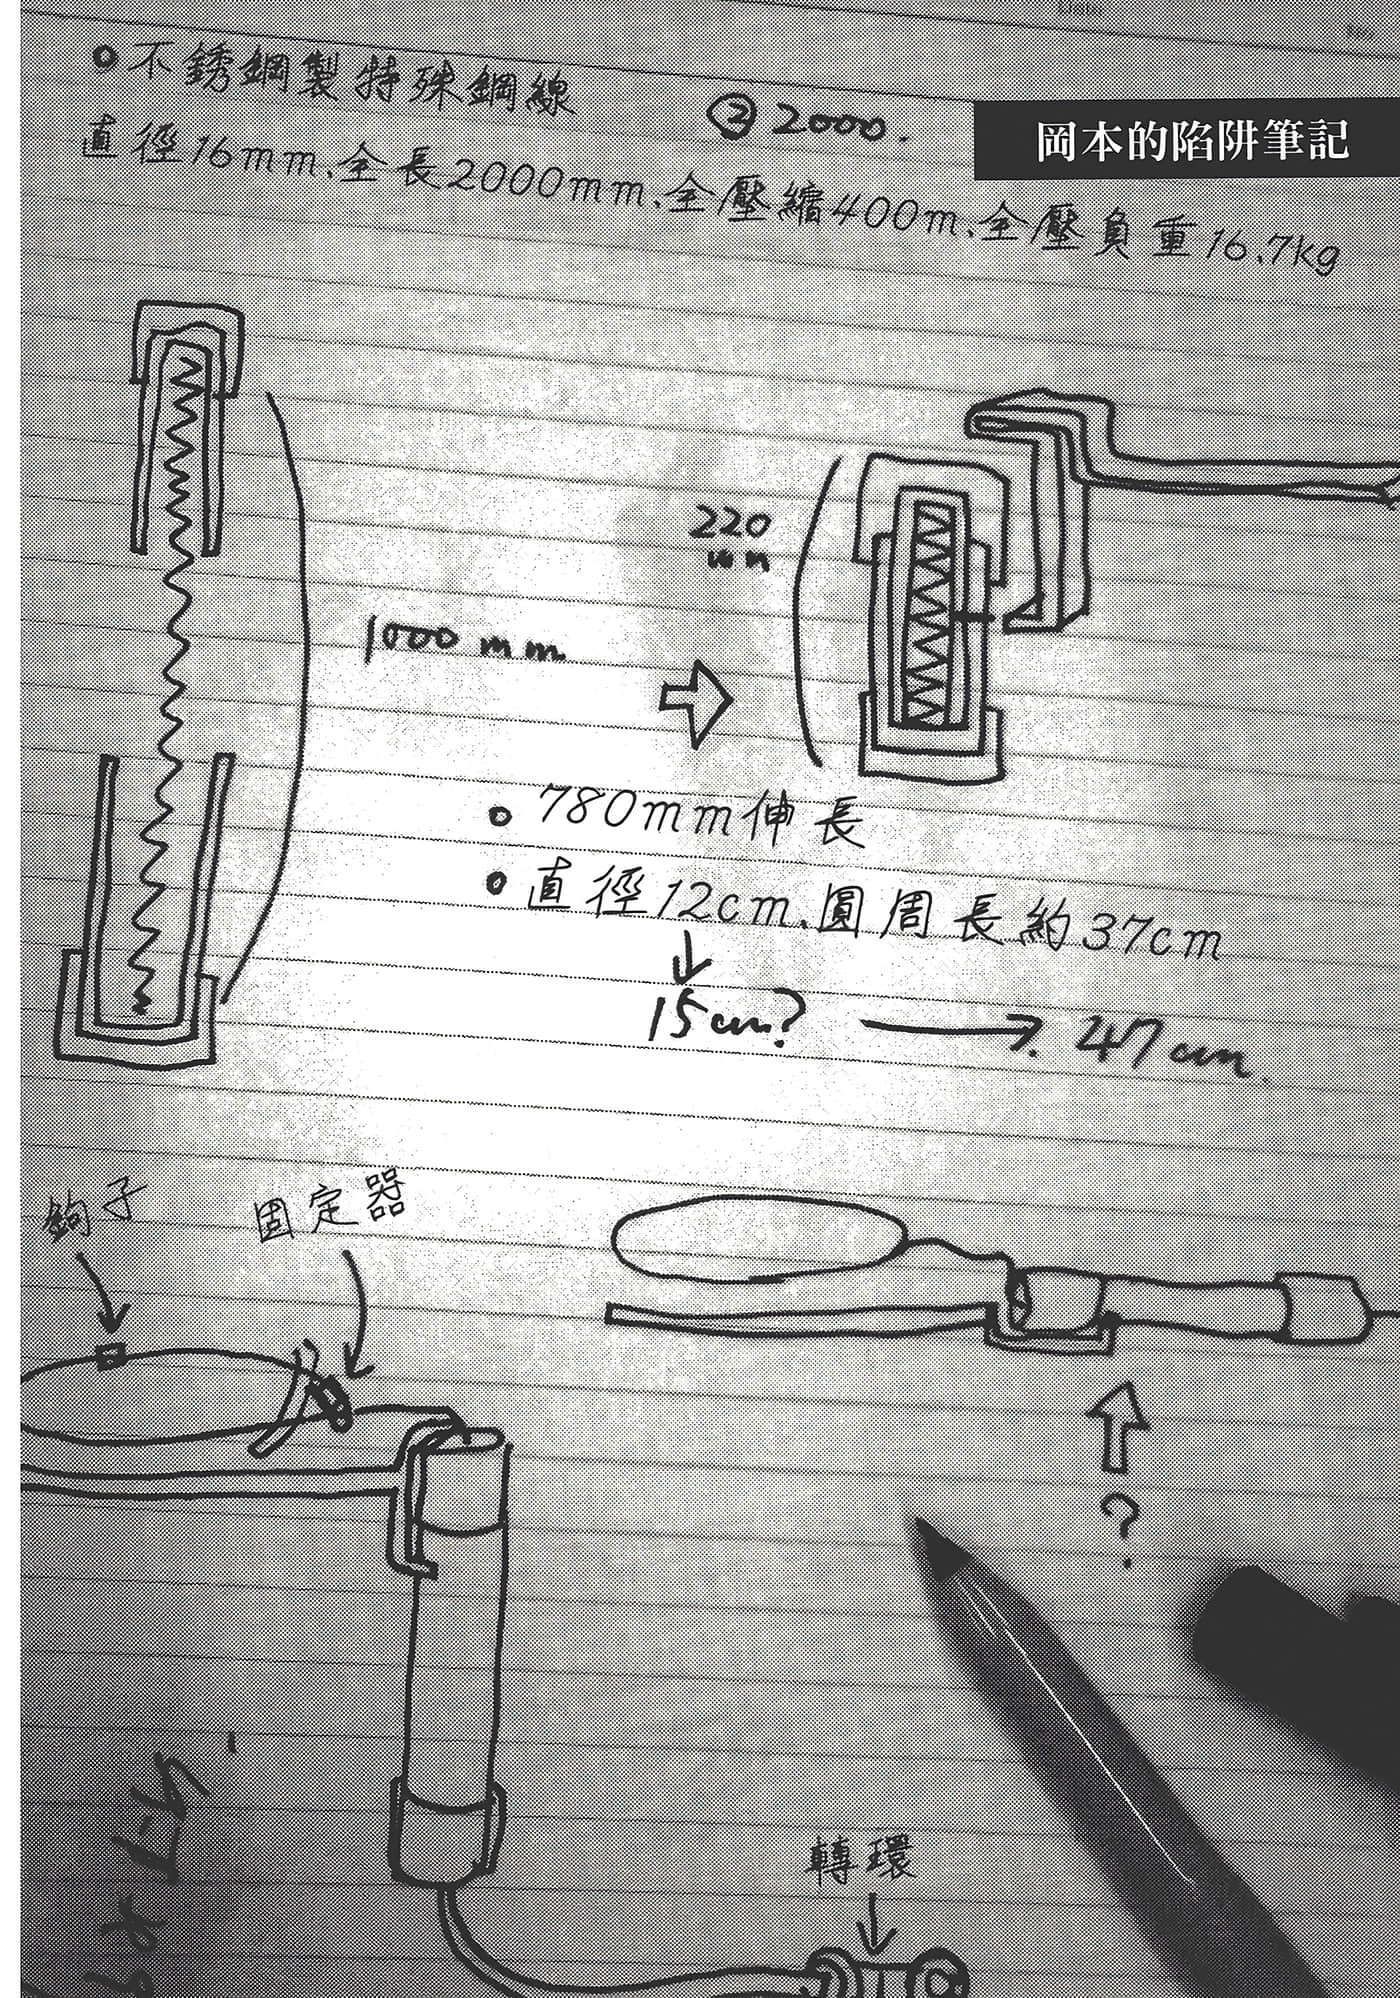 不銹鋼製特殊鋼線
② 2000.
岡本的陷阱筆記
直徑16mm、全長2000mm、全壓縮400m、全壓負重16.7kg
220
mm
1000 mm
780mm伸長
直徑12cm、圓周長約37cm
15cm?
47cm.
鉤子
固定器
?
轉環